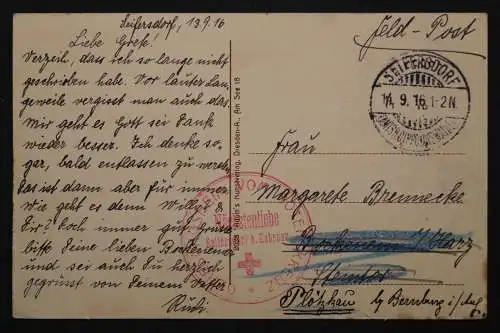 Seifersdorf, 13.9.16
Liebe Grete!
Verzeih, dass ich so lange nicht
geschrieben habe. Vor lauter Lan-
geweile vergisst man auch das.
Mir geht es Gott sei Dank
wieder besser. Ich denke so-
gar, bald entlassen zu werden.
Das ist dann aber für immer.
Wie geht es denn Willy &
Dir? Noch immer gut? Grüße
bitte Deine lieben
und sei auch Du herzlich
gegrüsst von Deinem Vetter
Rudi
Dresden-A., Am See 18
Feld-Post
SEIFERSDORF
14. 9. 16. 1-2N.
VOM ROTEN KREUZ
Nächstenliebe
Frau
Margarete Brennecke
Harz
Plötzkau bei Bernburg i./Anh.